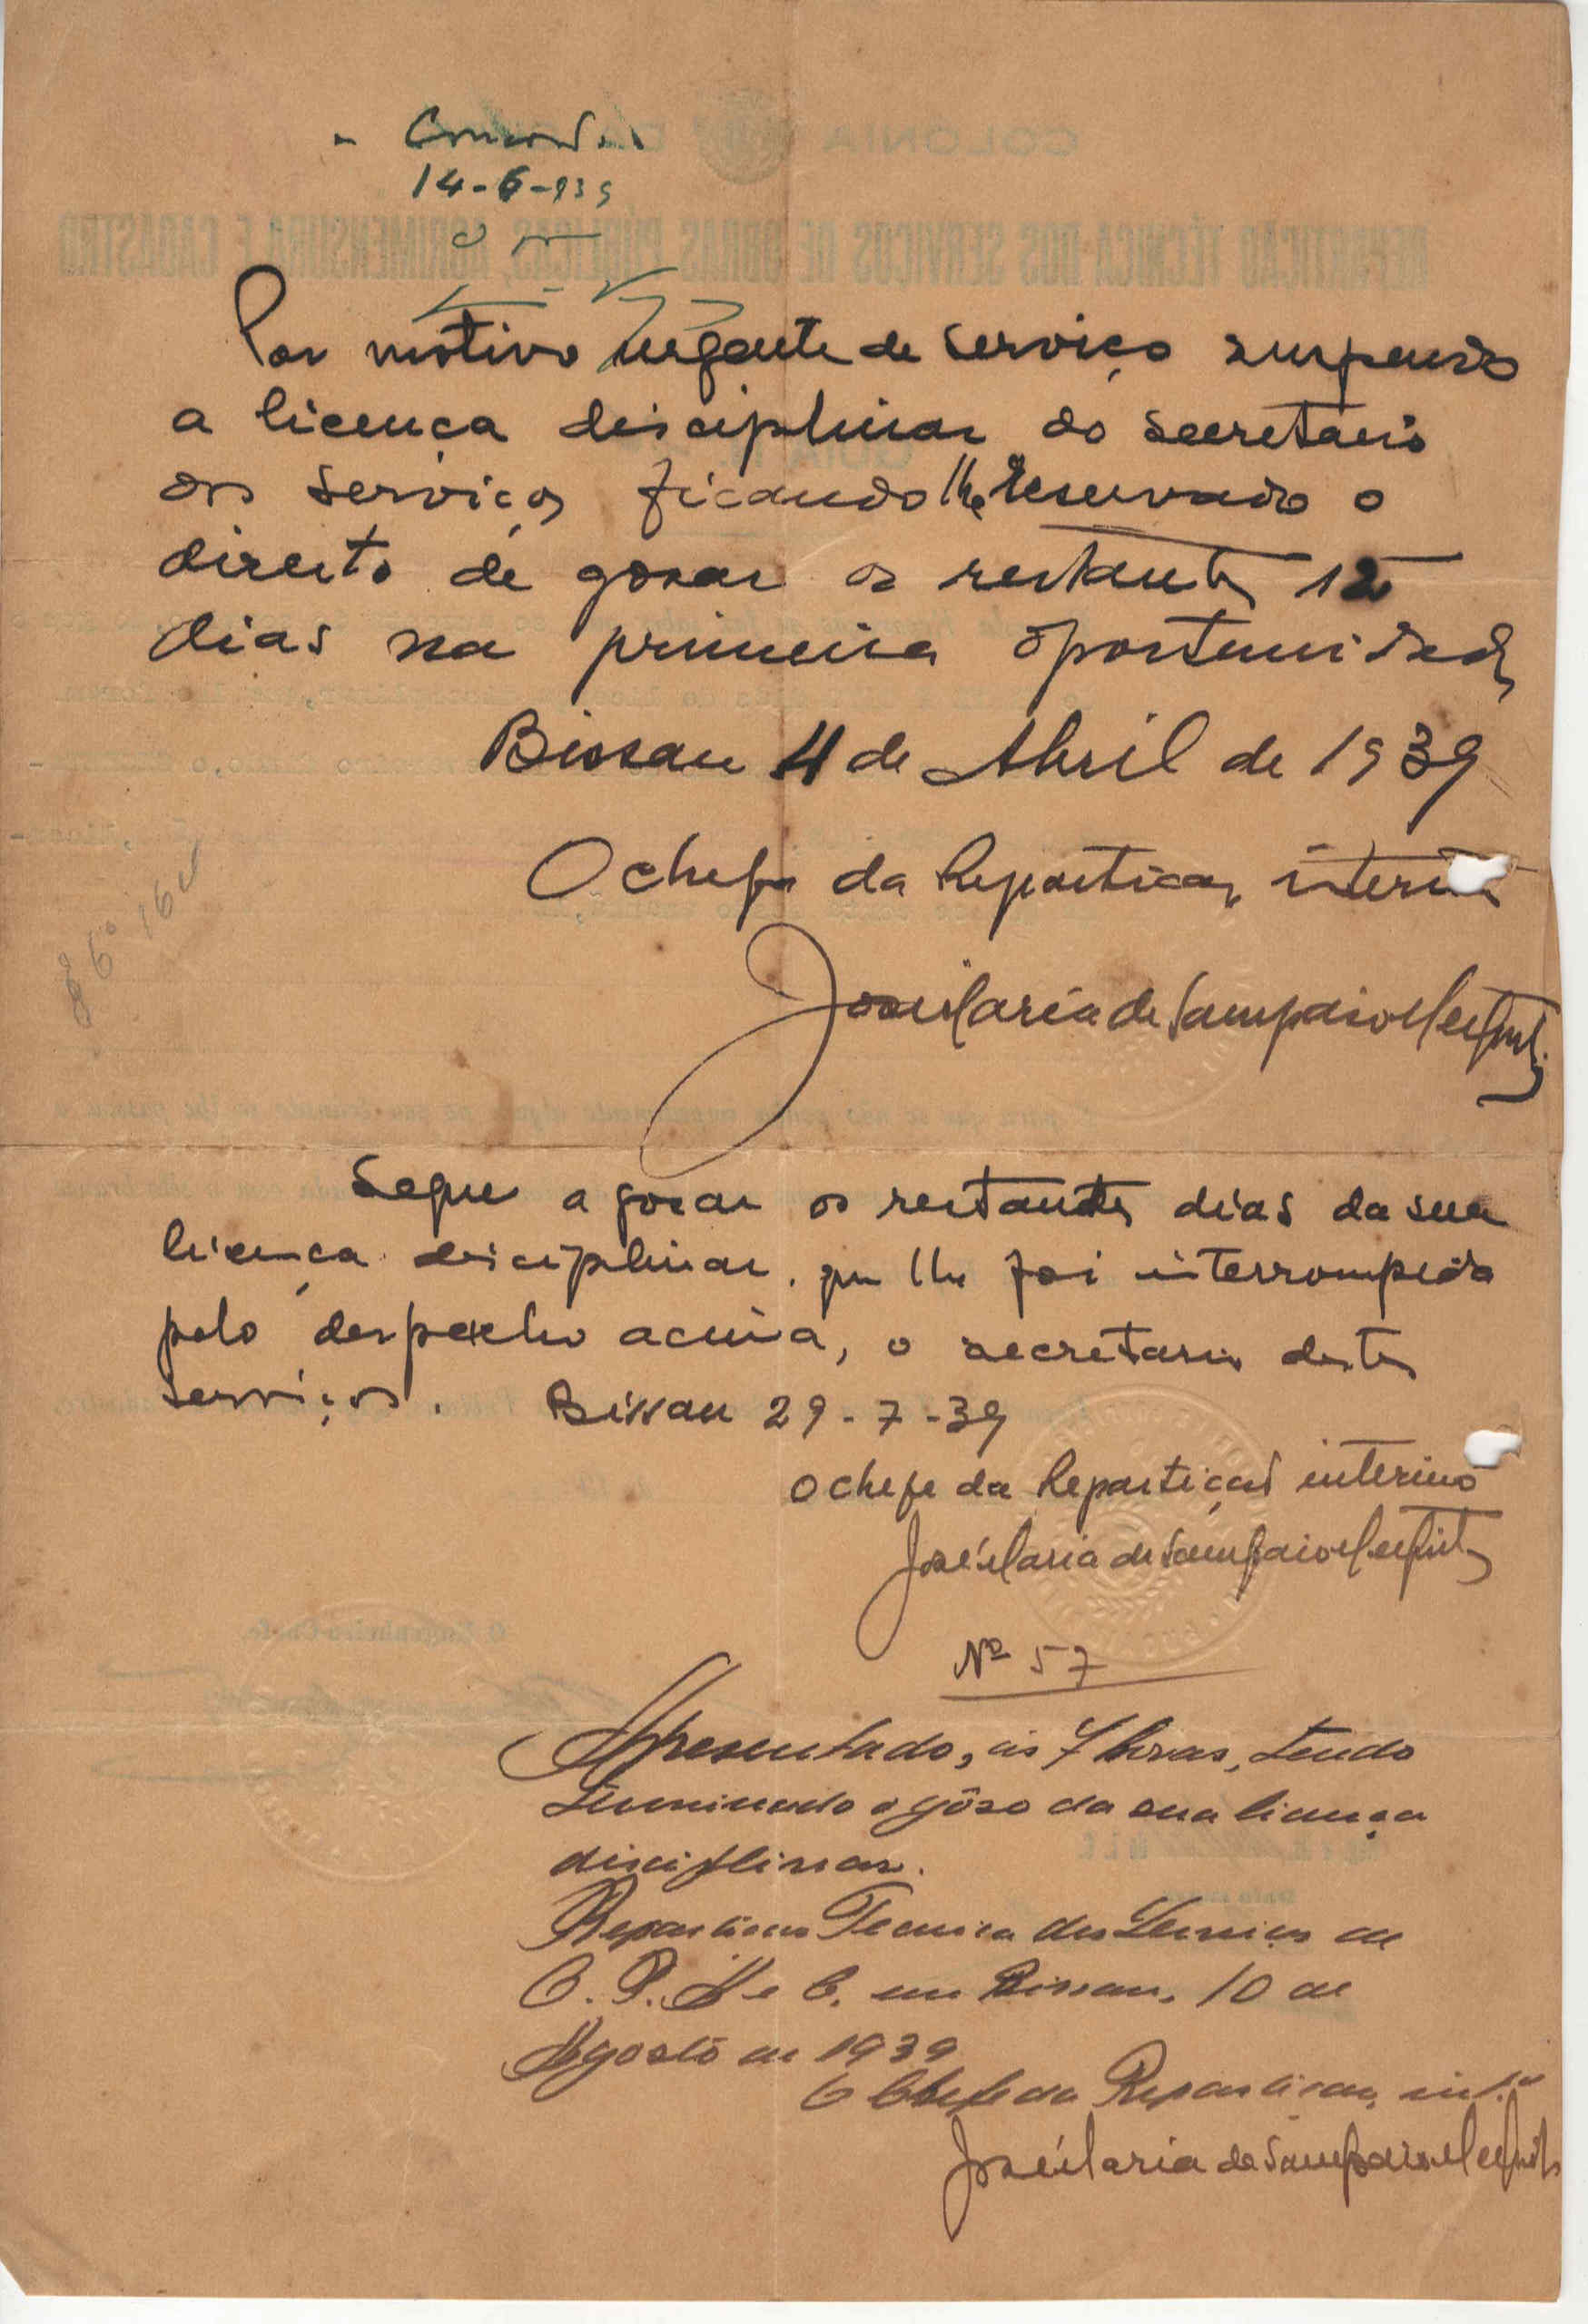 14-6-939
Por motivo urgente de serviço suspendo
a licença disciplinar do secretário
dos serviços ficando lhe reservado o
direito de gosar os restantes 12
dias na primeira oportunidade
Bissau 4 de Abril de 1939
O chefe da Repartição, interino
José Maria de Sampaio
Segue a gosar os restantes dias da sua
licença disciplinar, que lhe foi interrompida
pelo despacho acima, o secretario destes
serviços. Bissau 29-7-39
O chefe da Repartição interino
José Maria de Sampaio
Nº 57
Apresentado, ás 7 horas, tendo
terminado o gôso da sua licença
disciplinar.
Repartição Tecnica dos Serviços de
O. P. A e C. em Bissau, 10 de
Agosto de 1939
O Chefe da Repartição, int.º
José Maria de Sampaio